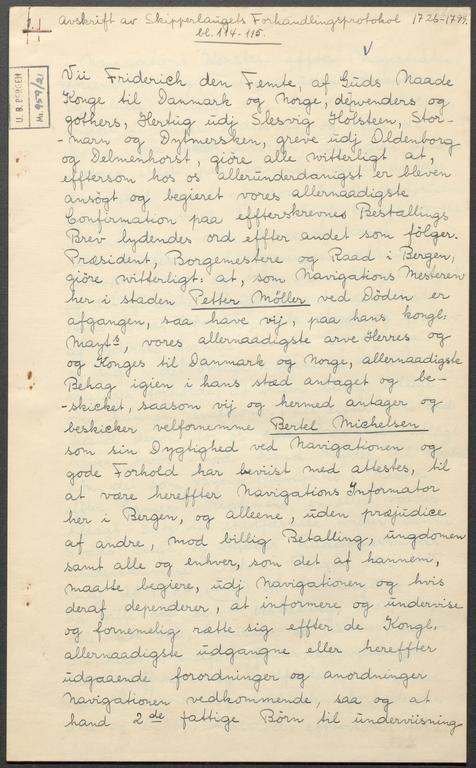 Avskrift av Skipperlaugets Forhandlingsprotokol 1726-1799.
bl. 114-115.
U. B. BERGEN
Ms. 957/21
Vii Friderich den Femte, af Guds Naade
Konge til Danmark og Norge, de wenders og
gothers, Hertug udj Slesvig Holsteen, Stor-
-marn og Dytmersken, greve udj Oldenborg
og Delmenhorst, giöre alle witterligt at,
efftersom hos os allerunderdanigst er bleven
ansøgt og begieret vores allernaadigste
Confirmation paa effterskrevne Bestallings
Brev lydendes ord effter andet som fölger.
Præsident, Borgemestere og Raad i Bergen,
giöre witterligt: at, som Navigations Mesteren
her i staden Petter Möller ved Döden er
afgangen, saa have vij, paa hans kongl:
Mayts, vores allernaadigste arve Herres og
og Konges til Danmark og Norge, allernaadigste
Behag igien i hans stæd antaget og be-
-skicket, saasom vij og hermed antager og
beskicker velfornemme Bertel Michelsen
som sin Dygtighed ved Navigationen og
gode Forhold har beviist med attestes, til
at være hereffter Navigations Informator
her i Bergen, og alleene, uden præjudice
af andre, mod billig Betalling, ungdomen
samt alle og enhver, som det af hannem,
maatte begiere, udj Navigationen og hvis
deraf dependerer, at informere og undervise
og fornemelig rætte sig effter de Kongl.
allernaadigste udgangne eller hereffter
udgaaende forordninger og anordninger
Navigationen vedkommende, saa og at
hand 2de fattige Börn til underviisning